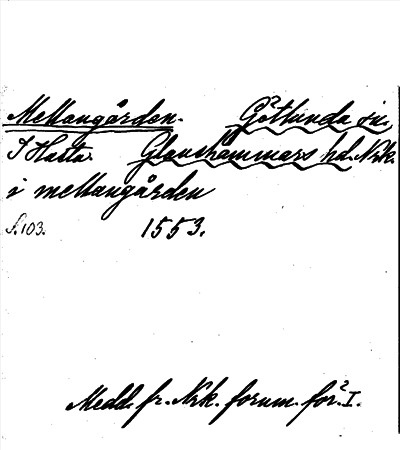 Mellangården. Götlunda sn.
I Hasta. Glanshammars hd. Nrk.
i mellangården
s. 103. 1553.
Medd. fr. Nrk. fornm. för² I.